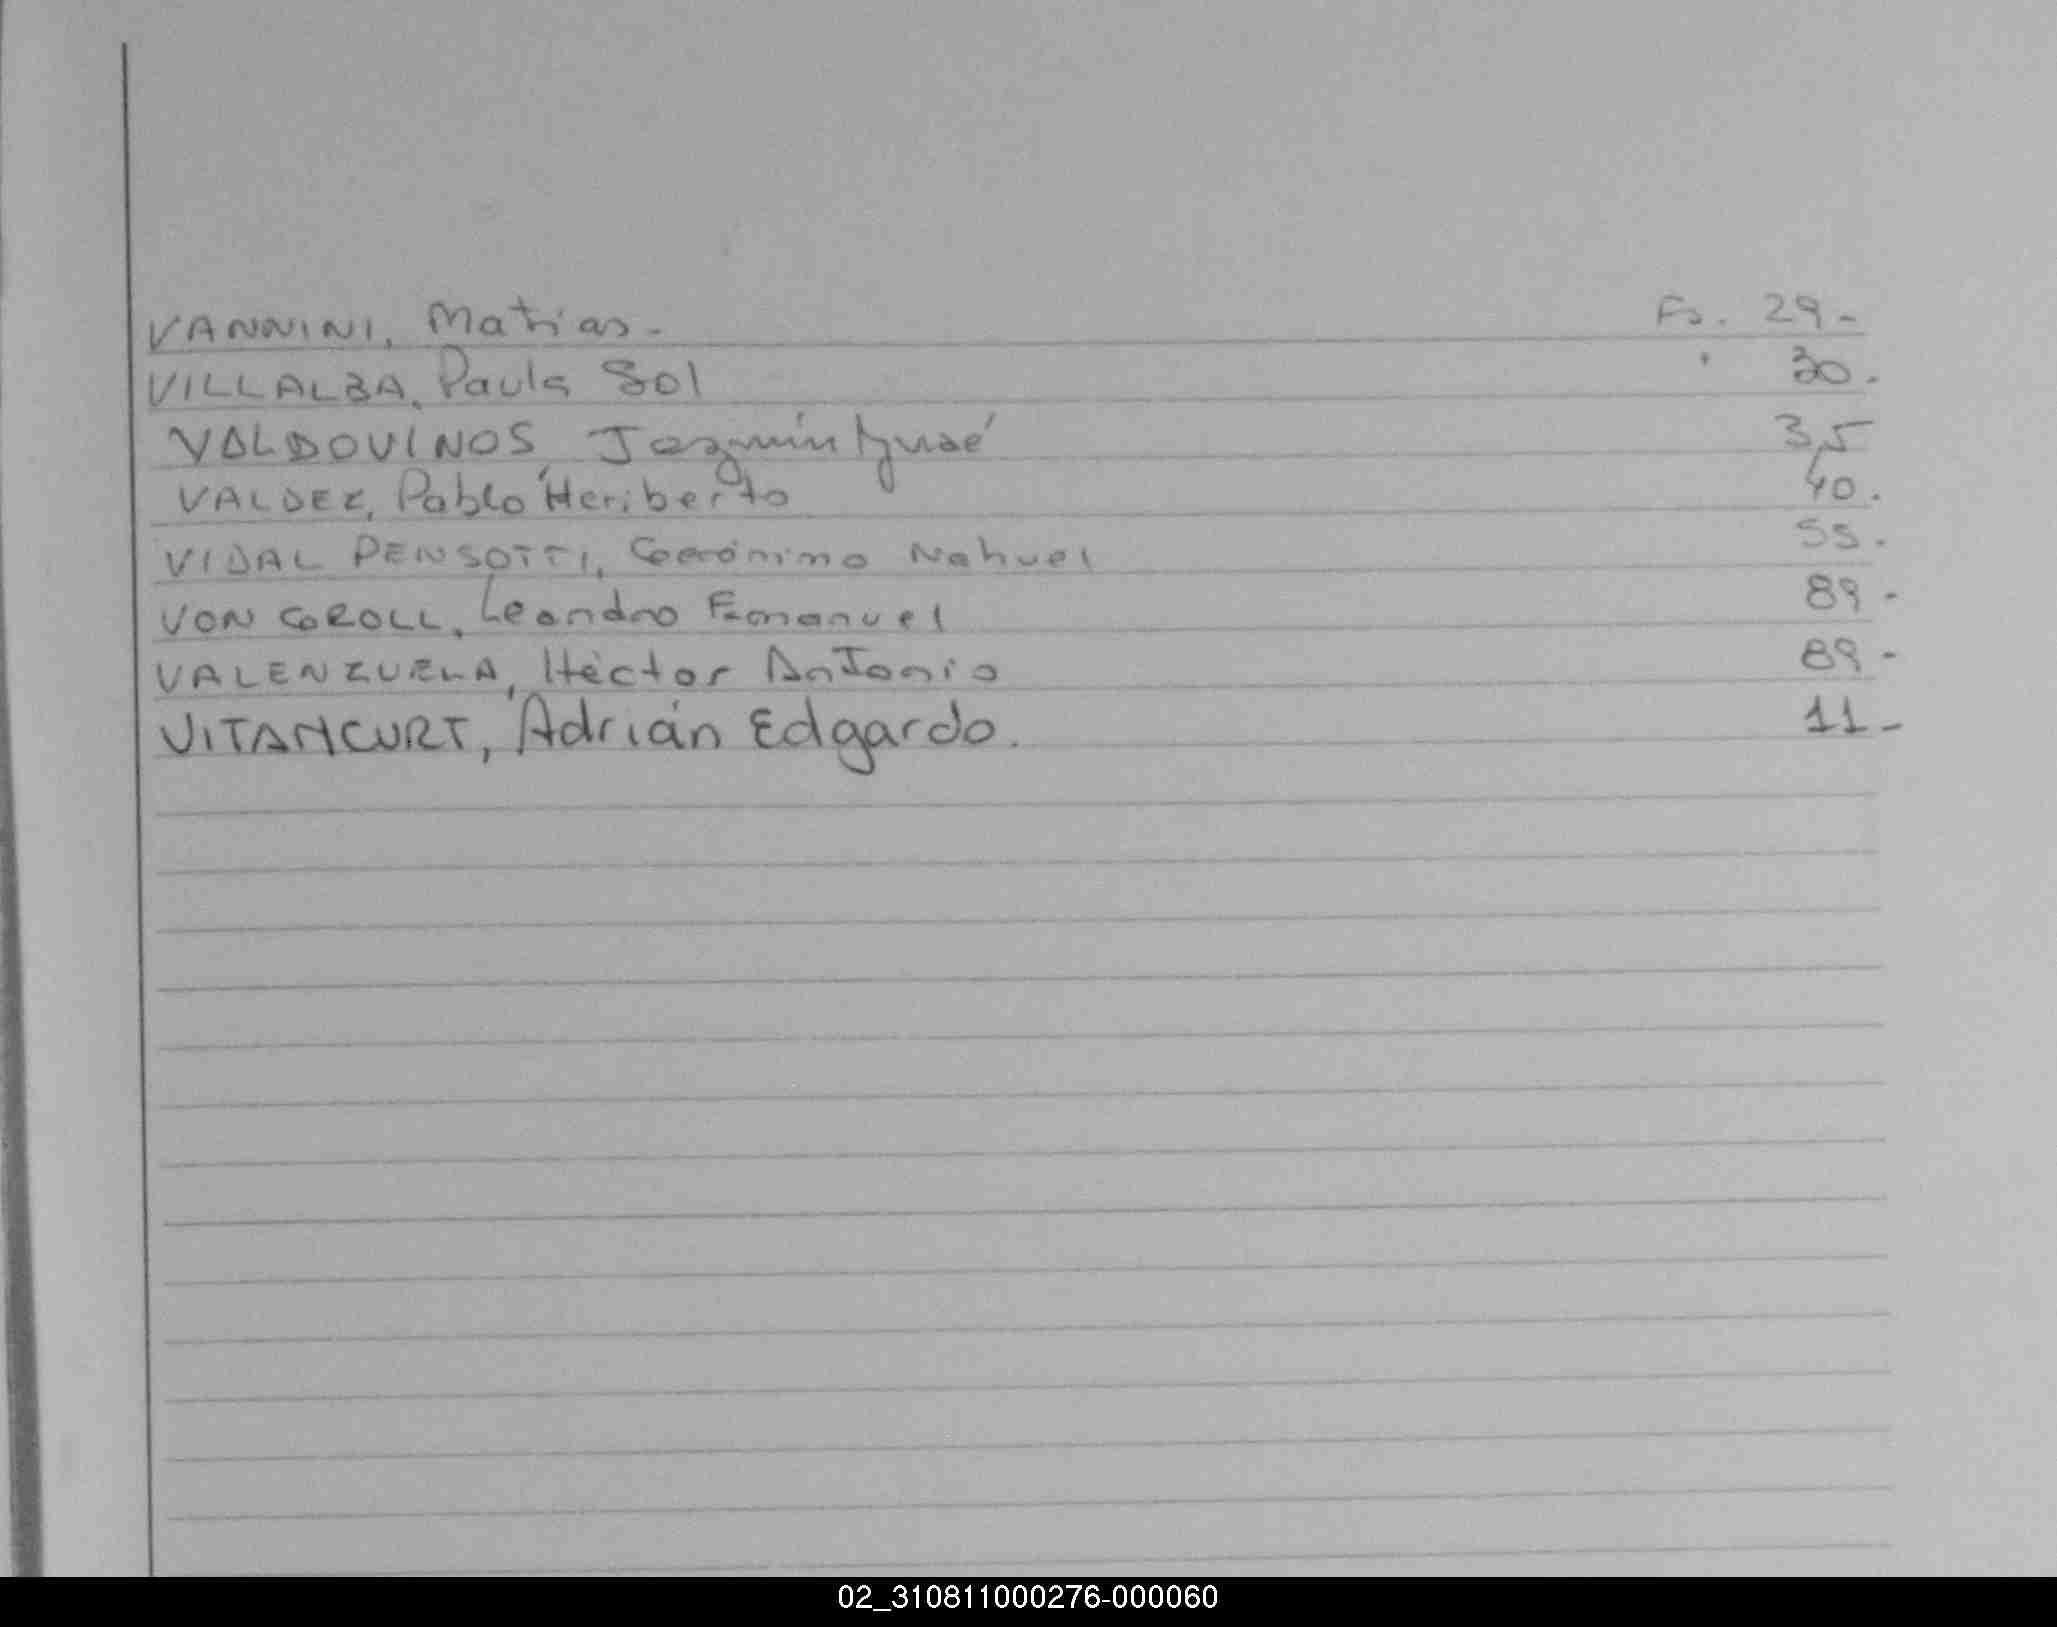 VANNINI, Matías - Fs. 29 -
VILLALBA, Paula Sol " 30.
VALDOVINOS, Jazmín 35
VALDEZ, Pablo Heriberto 40.
VIDAL PENSOTTI, Gerónimo Nahuel 55.
VON GROLL, Leandro Emanuel 89 -
VALENZUELA, Héctor Antonio 89 -
VITANCURT, Adrián Edgardo. 11 -
02_310811000276-000060